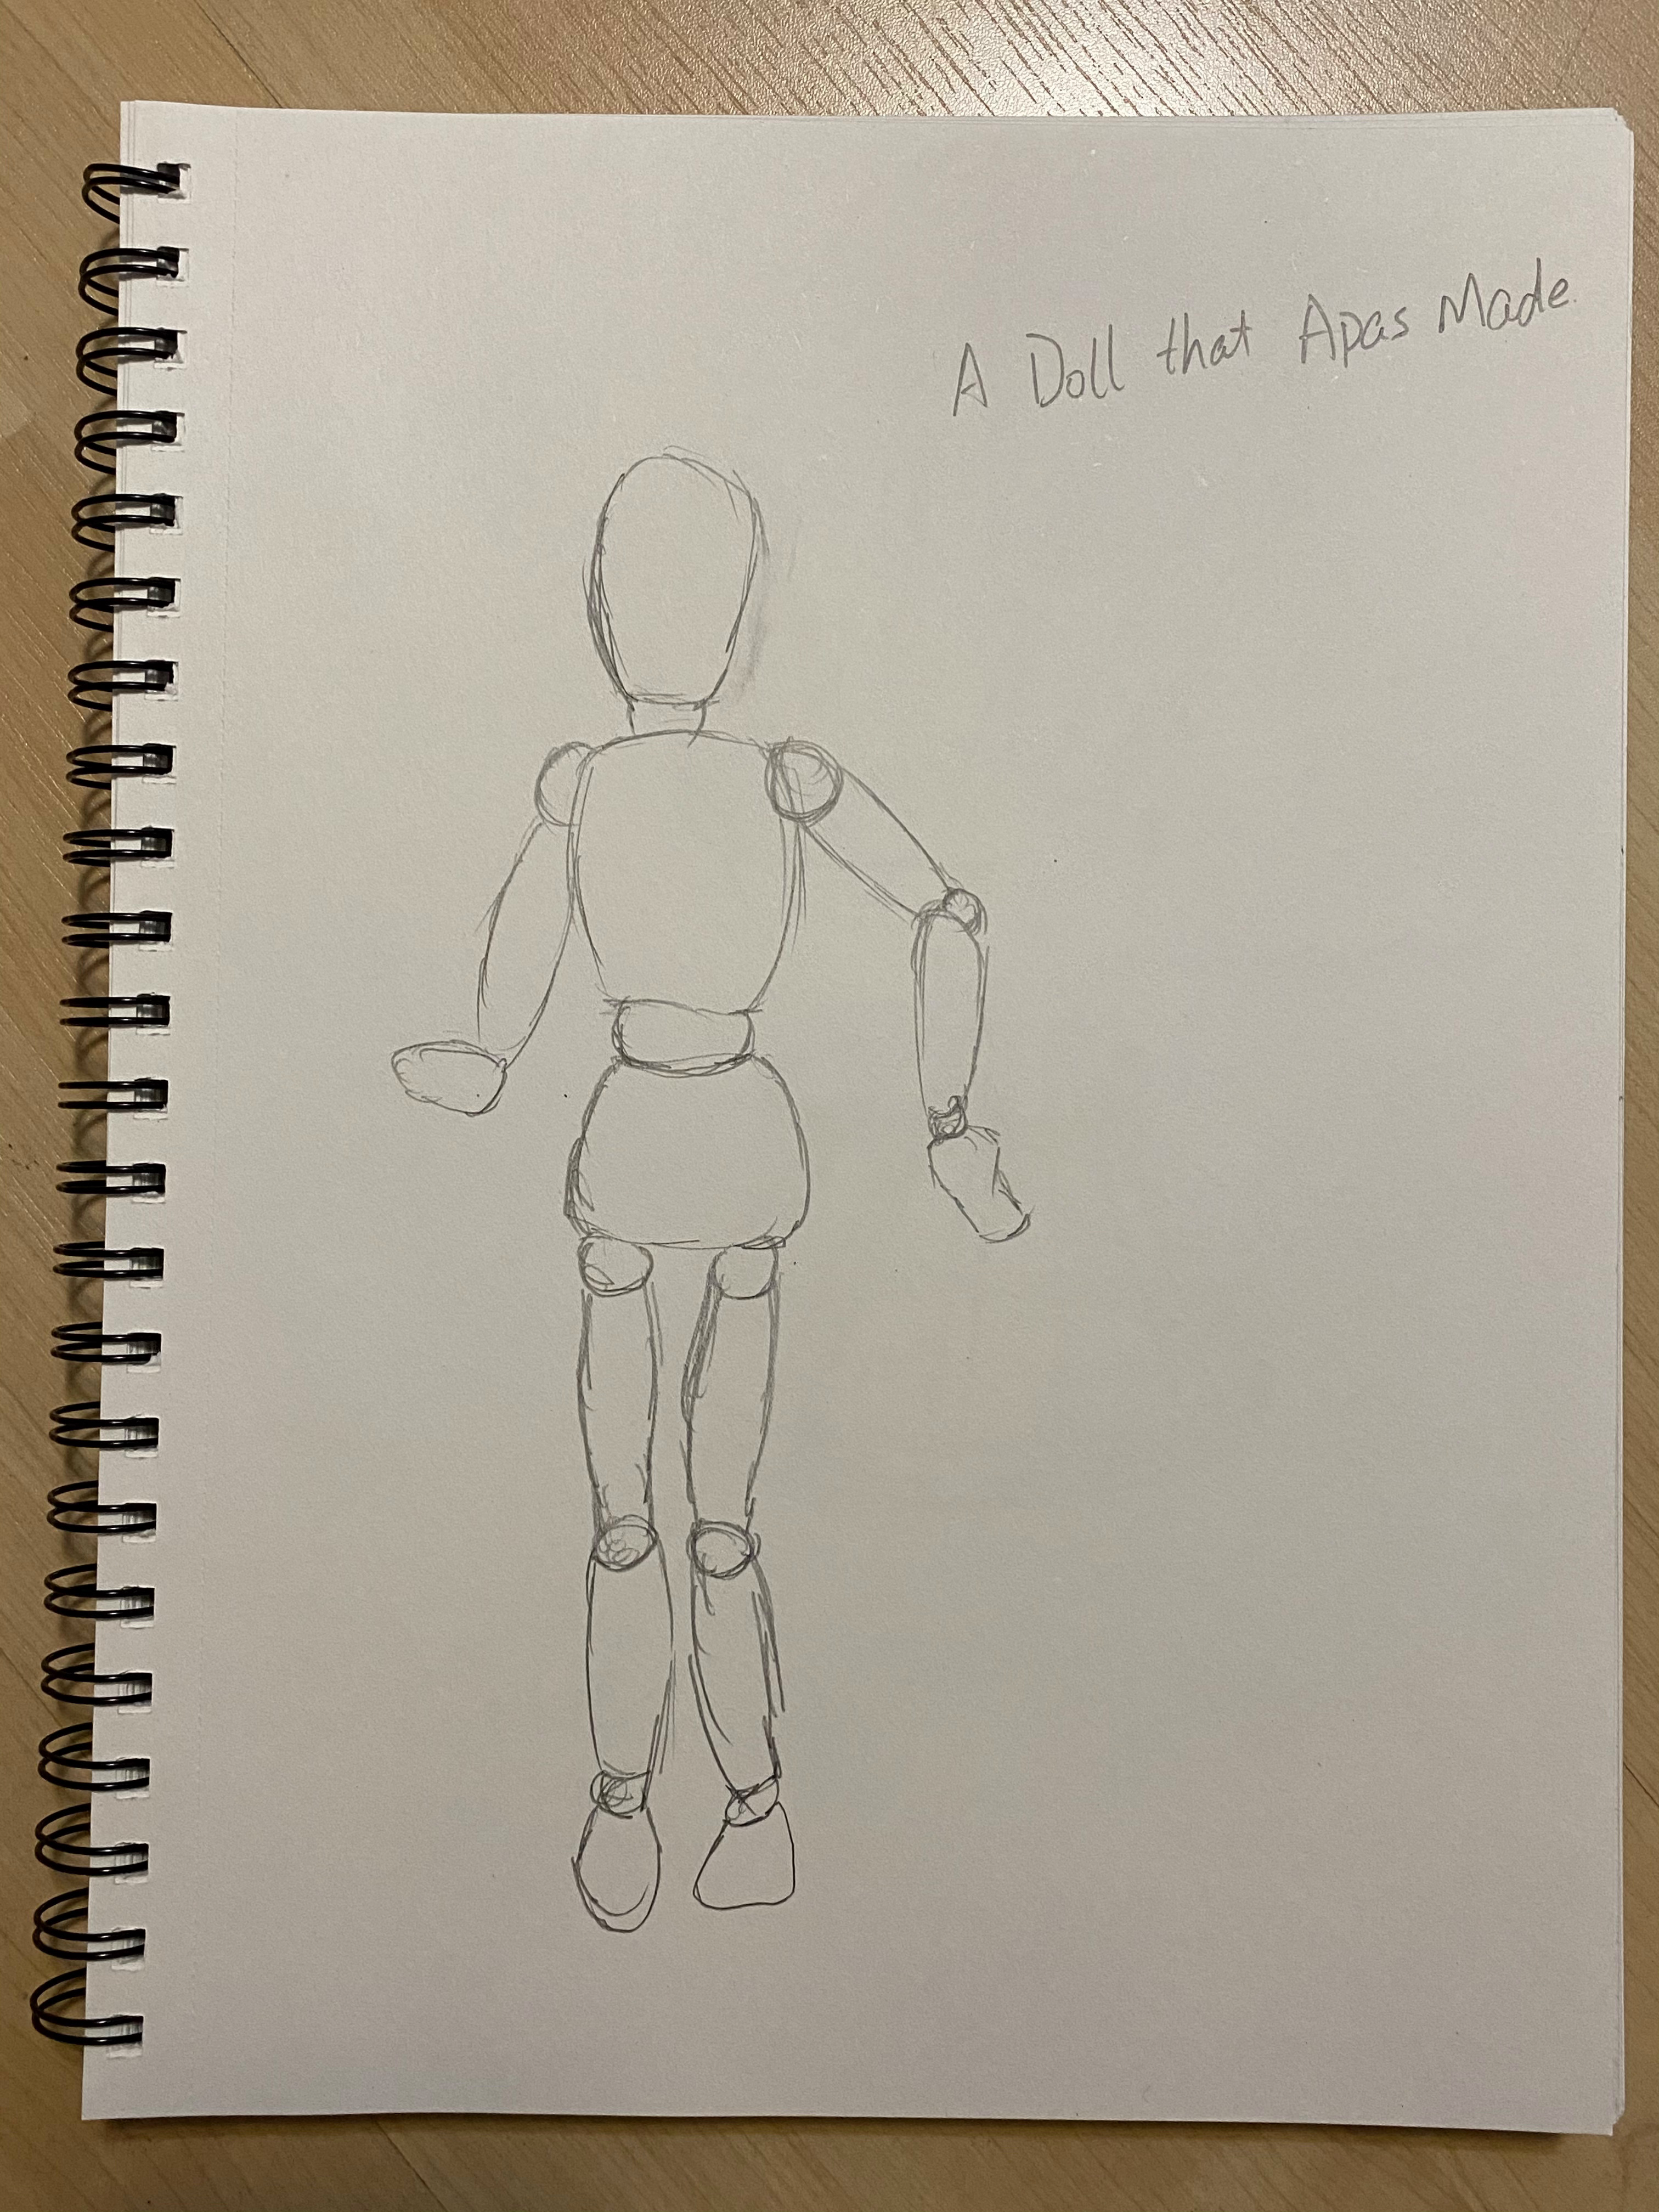 A Doll that Apas Made